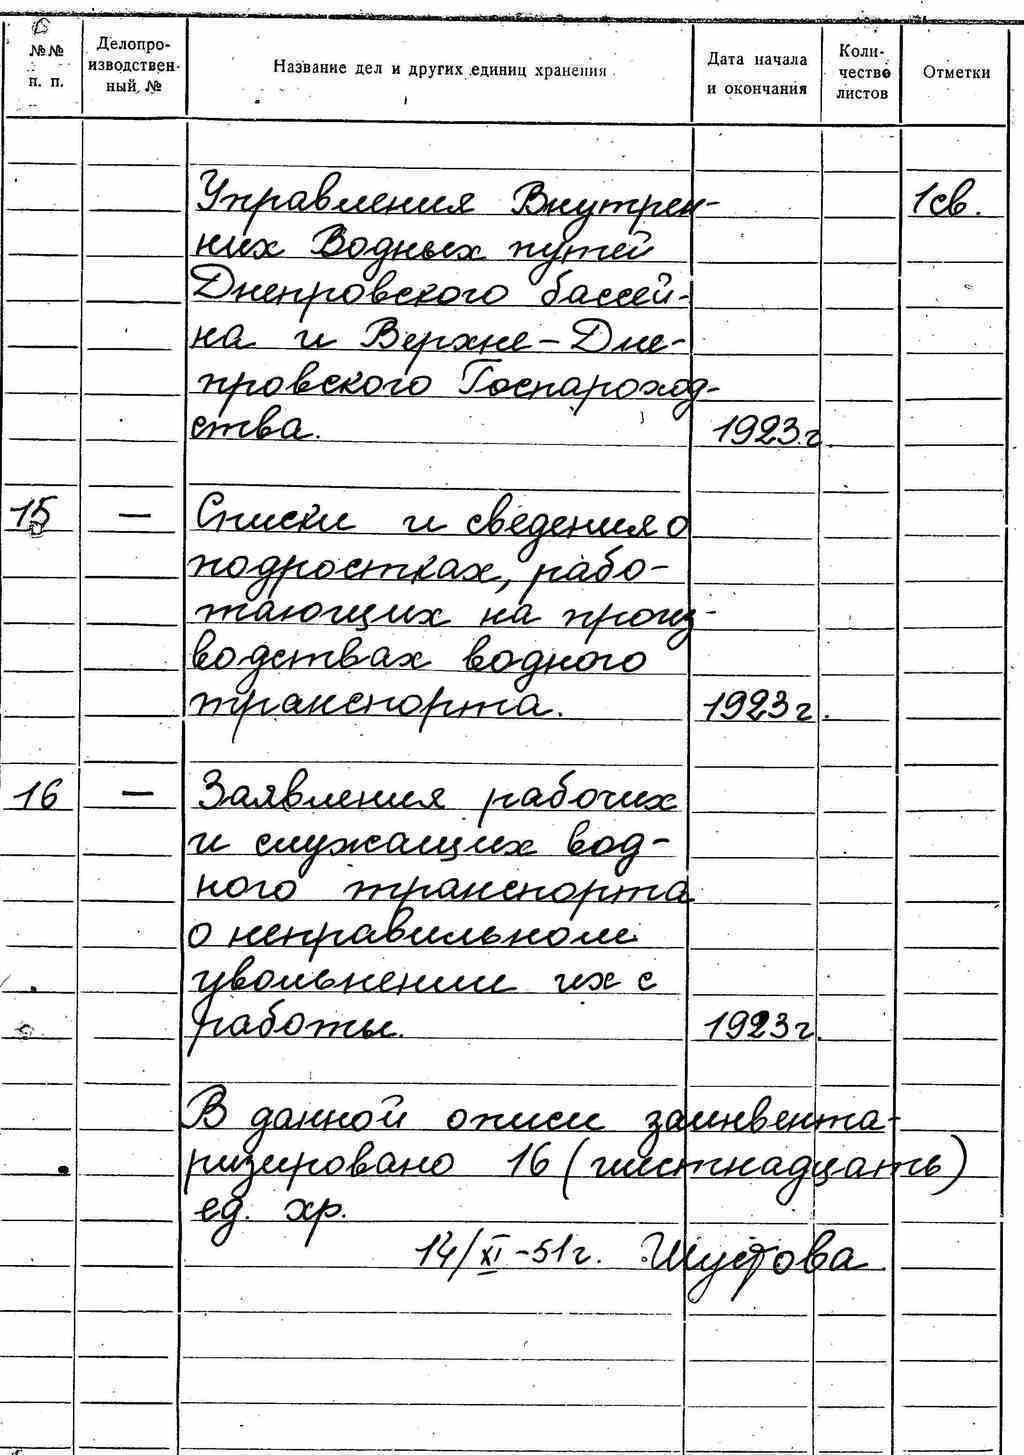 №№ н. п.
Делопро-
изводствен-
ный №
Название дел и других единиц хранения
Дата начала
и окончания
Коли-
чество
листов
Отметки
Управления Внутрен- 1 св.
них Водных путей
Днепровского бассей-
на и Верхне-Дне-
провского Госпароход-
ства. 1923 г
15 — Списки и сведения о
подростках, рабо-
тающих на произ-
водствах водного
транспорта. 1923 г.
16 — Заявления рабочих
и служащих вод-
ного транспорта
о неправильном
увольнении их с
работы. 1923 г.
В данной описи заинвента-
ризировано 16 (шестнадцать)
ед. хр.
14/XI-51 г. Шустова